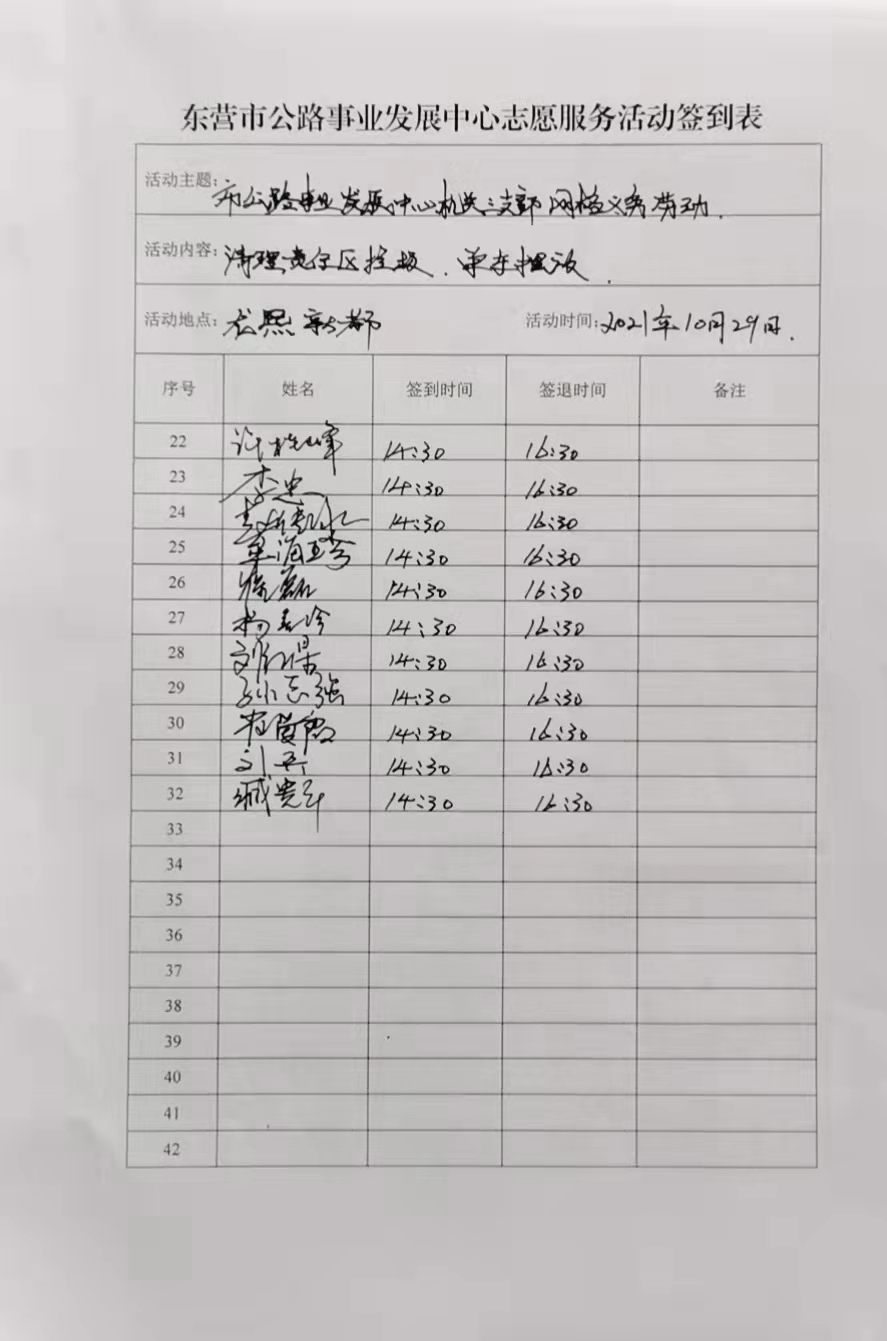 东营市公路事业发展中心志愿服务活动签到表
活动主题: 市公路事业发展中心机关三支部网格义务劳动.
活动内容: 清理责任区垃圾、单车摆放.
活动地点: 龙熙新都 活动时间: 2021年10月29日.
序号 姓名 签到时间 签退时间 备注
22 许桂峰 14:30 16:30
23 李忠 14:30 16:30
24 14:30 16:30
25 14:30 16:30
26 徐磊 14:30 16:30
27 杨 14:30 16:30
28 刘 14:30 16:30
29 孙志强 14:30 16:30
30 14:30 16:30
31 刘兵 14:30 16:30
32 臧贵军 14:30 16:30
33
34
35
36
37
38
39
40
41
42